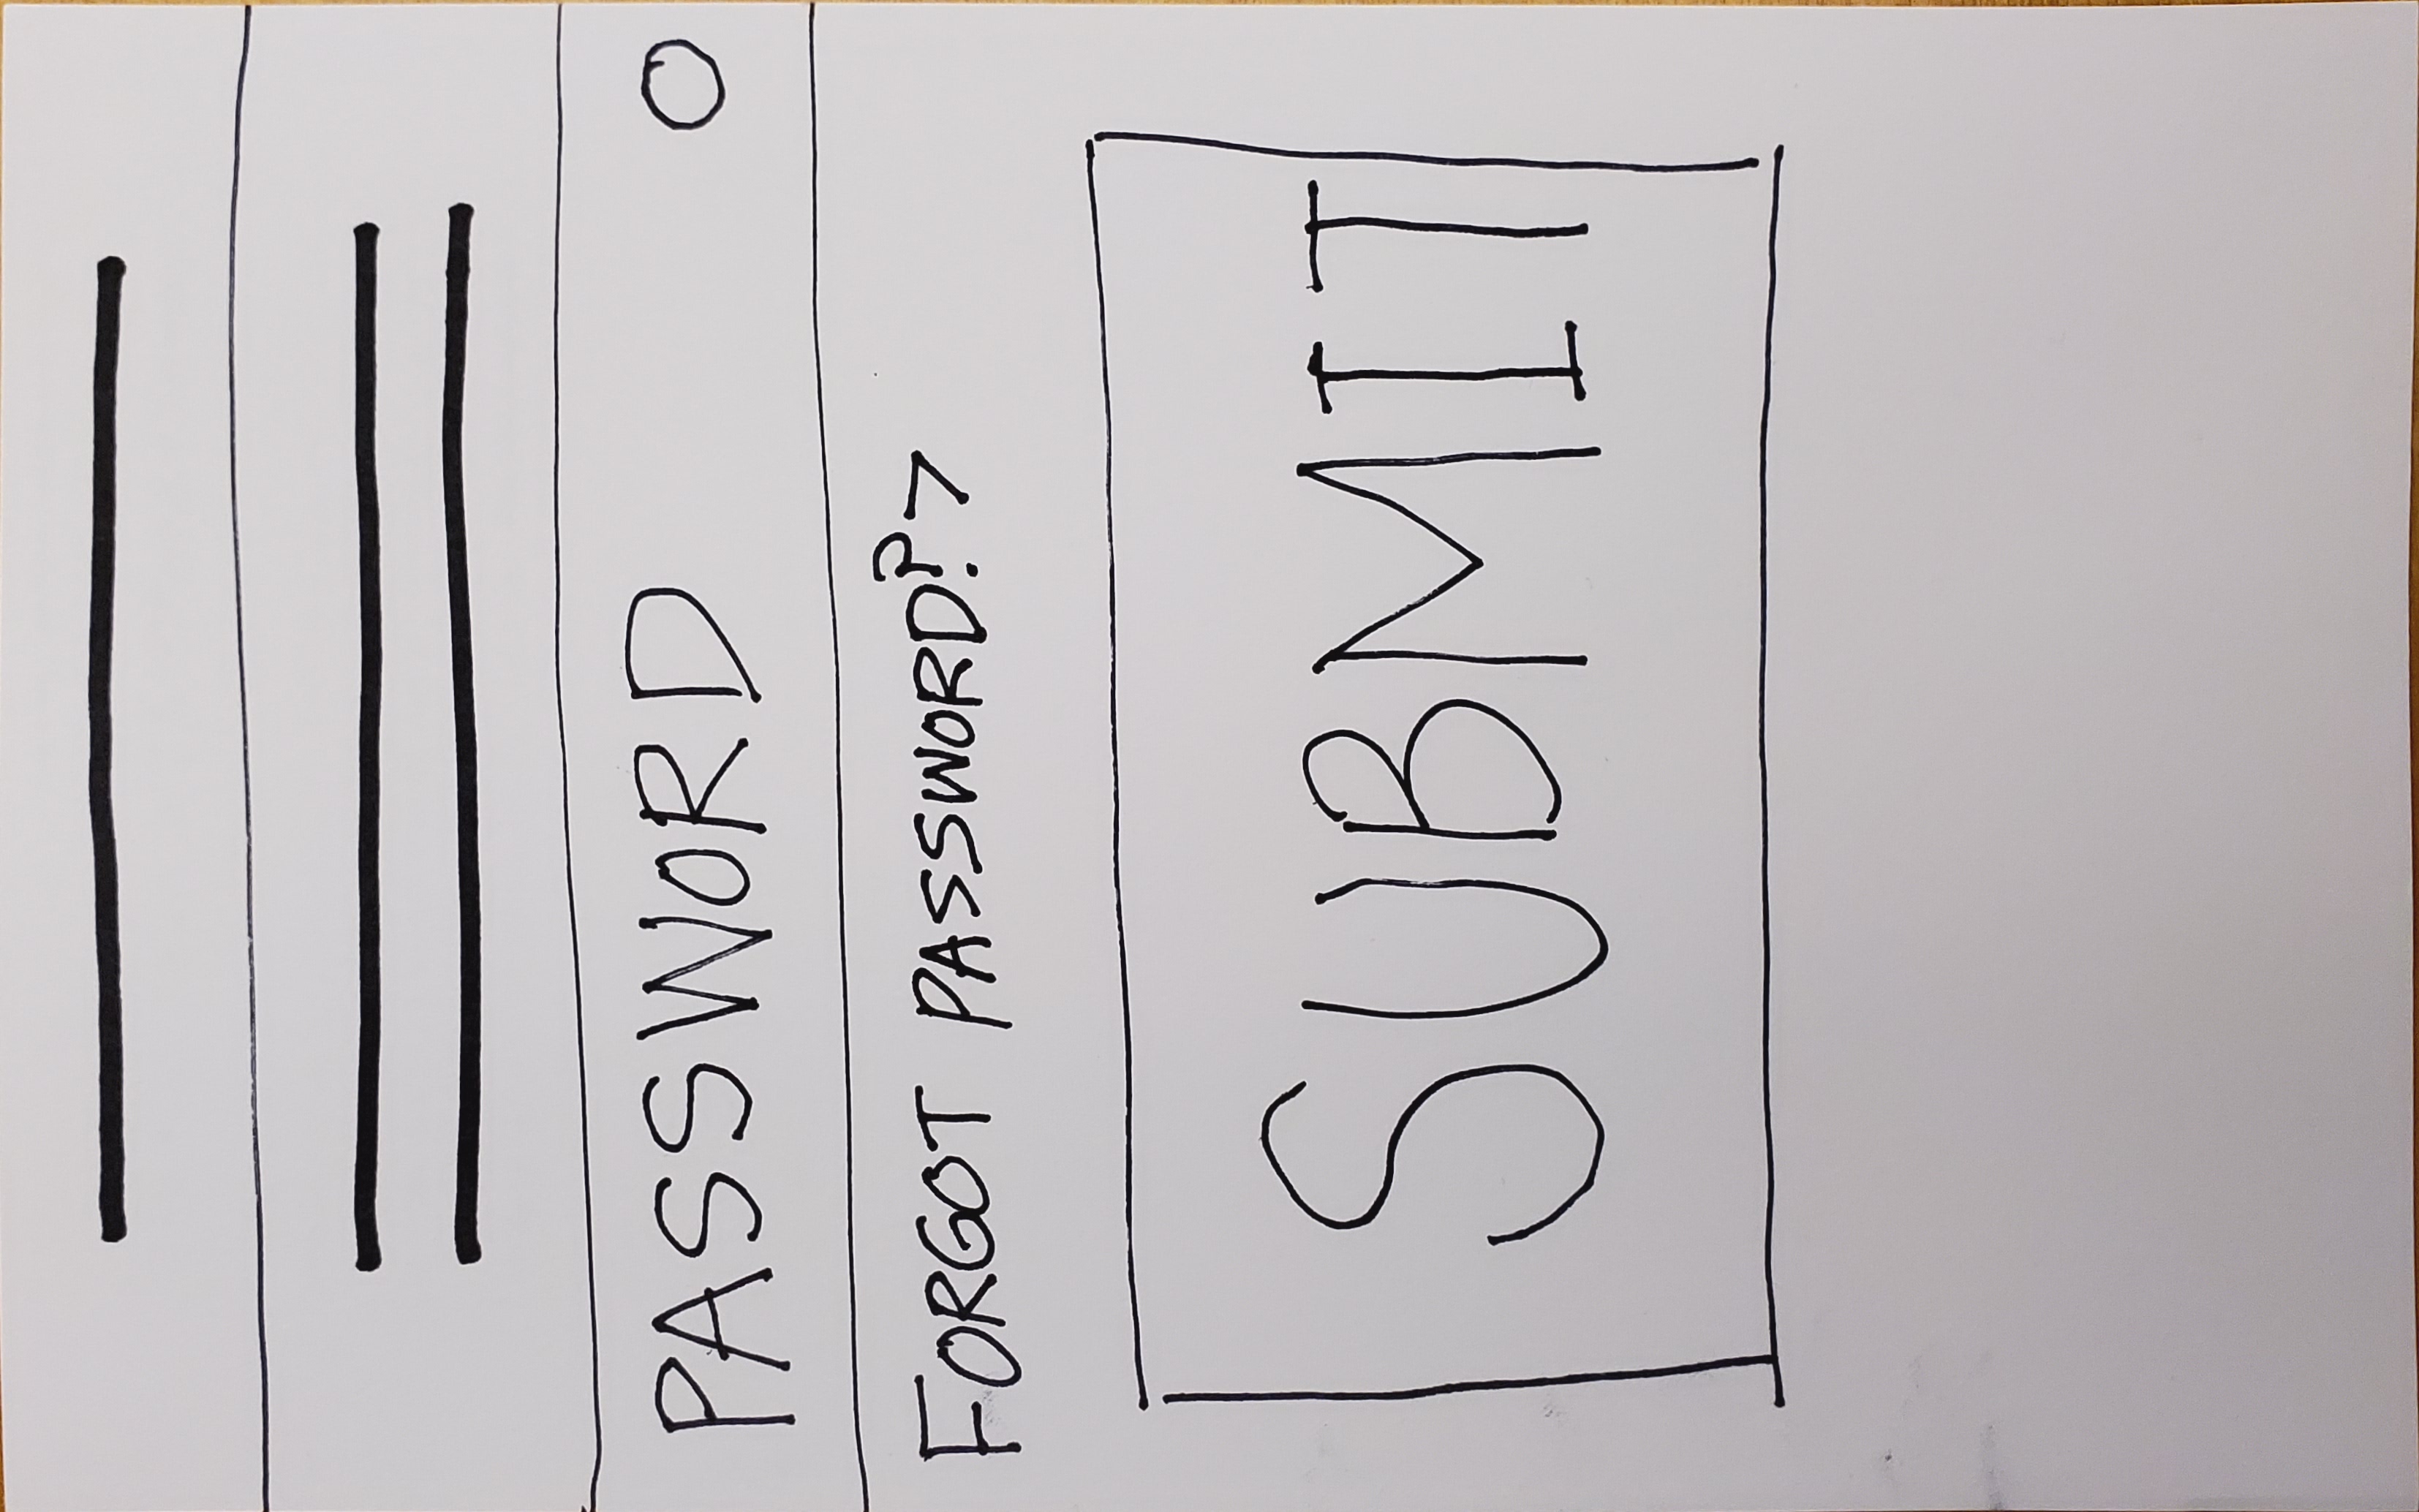 PASSWORD
FORGOT PASSWORD? >
SUBMIT